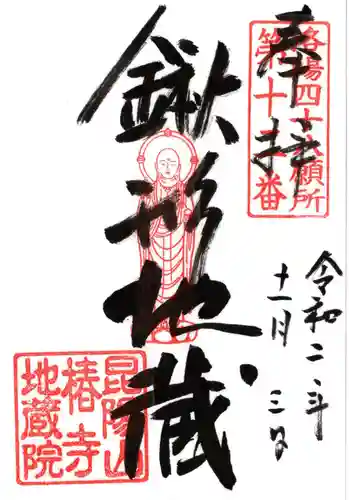 奉拝
洛陽四十八願所
第十番
鍬形地蔵
令和二年
十一月三日
昆陽山
椿寺
地蔵院